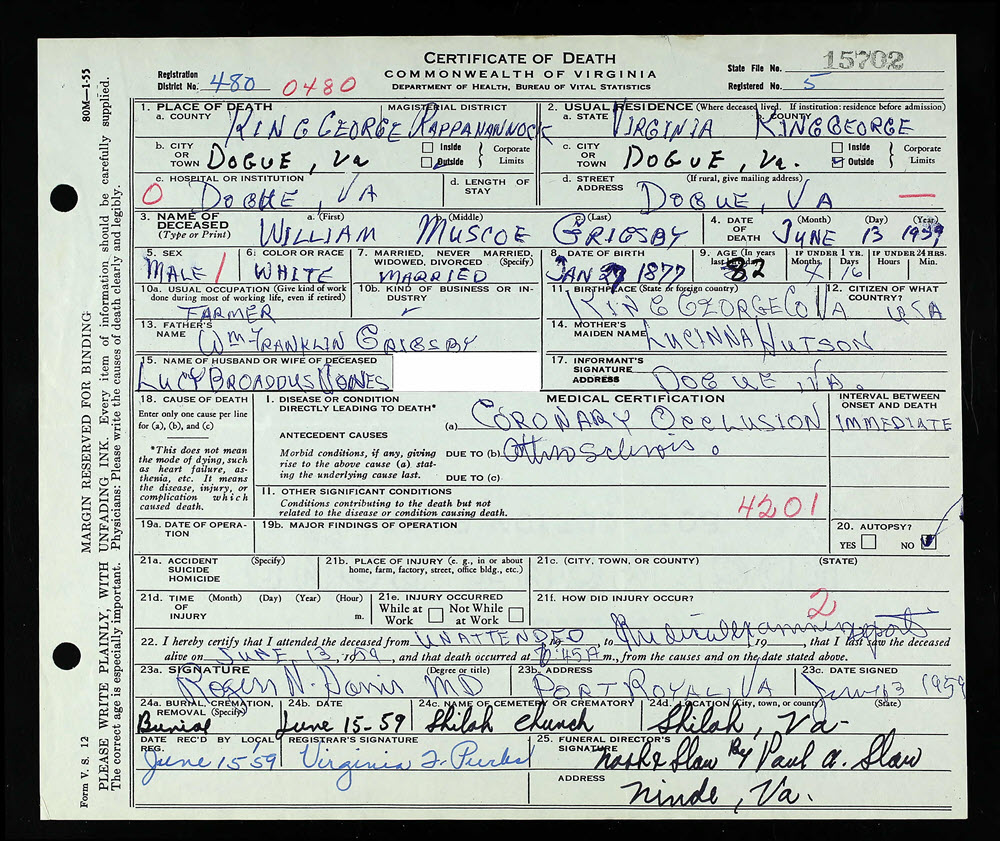 CERTIFICATE OF DEATH
COMMONWEALTH OF VIRGINIA
DEPARTMENT OF HEALTH, BUREAU OF VITAL STATISTICS
Registration District No. 480 0480
State File No. 15702
Registered No. 5
80M—1-55
MARGIN RESERVED FOR BINDING
PLEASE WRITE PLAINLY, WITH UNFADING INK. Every item of information should be carefully supplied.
The correct age is especially important. Physicians: Please write the causes of death clearly and legibly.
Form V. S. 12
1. PLACE OF DEATH
a. COUNTY KING GEORGE
MAGISTERIAL DISTRICT RAPPANANNOCK
2. USUAL RESIDENCE (Where deceased lived. If institution: residence before admission)
a. STATE VIRGINIA
b. COUNTY KING GEORGE
b. CITY OR TOWN DOGUE, Va
Inside Outside Corporate Limits
c. CITY OR TOWN DOGUE, Va.
Inside Outside Corporate Limits
c. HOSPITAL OR INSTITUTION
0 DOGUE, VA
d. LENGTH OF STAY
d. STREET ADDRESS (If rural, give mailing address)
DOGUE, VA —
3. NAME OF DECEASED (Type or Print)
a. (First) WILLIAM
b. (Middle) MUSCOE
c. (Last) GRIGSBY
4. DATE OF DEATH (Month) (Day) (Year)
JUNE 13 1959
5. SEX
MALE 1
6. COLOR OR RACE
WHITE
7. MARRIED, NEVER MARRIED, WIDOWED, DIVORCED (Specify)
MARRIED
8. DATE OF BIRTH
JAN 27 1877
9. AGE (In years last birthday)
82
IF UNDER 1 YR. Months, Days
4 16
IF UNDER 24 HRS. Hours Min.
10a. USUAL OCCUPATION (Give kind of work done during most of working life, even if retired)
FARMER
10b. KIND OF BUSINESS OR INDUSTRY
11. BIRTHPLACE (State or foreign country)
KING GEORGE CO VA
12. CITIZEN OF WHAT COUNTRY?
USA
13. FATHER'S NAME
Wm FRANKLIN GRIGSBY
14. MOTHER'S MAIDEN NAME
LUCINNA HUTSON
15. NAME OF HUSBAND OR WIFE OF DECEASED
LUCY BROADDUS JONES
17. INFORMANT'S SIGNATURE
ADDRESS DOGUE, VA.
18. CAUSE OF DEATH
Enter only one cause per line for (a), (b), and (c)
*This does not mean the mode of dying, such as heart failure, asthenia, etc. It means the disease, injury, or complication which caused death.
MEDICAL CERTIFICATION
INTERVAL BETWEEN ONSET AND DEATH
I. DISEASE OR CONDITION DIRECTLY LEADING TO DEATH*
(a) CORONARY OCCLUSION
IMMEDIATE
ANTECEDENT CAUSES
Morbid conditions, if any, giving rise to the above cause (a) stating the underlying cause last.
DUE TO (b)
DUE TO (c)
II. OTHER SIGNIFICANT CONDITIONS
Conditions contributing to the death but not related to the disease or condition causing death.
4201
19a. DATE OF OPERATION
19b. MAJOR FINDINGS OF OPERATION
20. AUTOPSY?
YES NO
21a. ACCIDENT SUICIDE HOMICIDE (Specify)
21b. PLACE OF INJURY (e. g., in or about home, farm, factory, street, office bldg., etc.)
21c. (CITY, TOWN, OR COUNTY) (STATE)
21d. TIME OF INJURY (Month) (Day) (Year) (Hour) m.
21e. INJURY OCCURRED
While at Work Not While at Work
21f. HOW DID INJURY OCCUR?
2
22. I hereby certify that I attended the deceased from UNATTENDED, 19, to, 19, that I last saw the deceased
alive on JUNE 13, 1959, and that death occurred at 6:45A m., from the causes and on the date stated above.
23a. SIGNATURE (Degree or title)
Roger N. MD
23b. ADDRESS
PORT ROYAL, VA
23c. DATE SIGNED
June 13 1959
24a. BURIAL, CREMATION, REMOVAL (Specify)
Burial
24b. DATE
June 15-59
24c. NAME OF CEMETERY OR CREMATORY
Shiloh Church
24d. LOCATION (City, town, or county) (State)
Shiloh, Va-
DATE REC'D BY LOCAL REG.
June 15 59
REGISTRAR'S SIGNATURE
Virginia F.
25. FUNERAL DIRECTOR'S SIGNATURE
Nash & Slaw By Paul A. Slaw
ADDRESS
Ninde, Va.